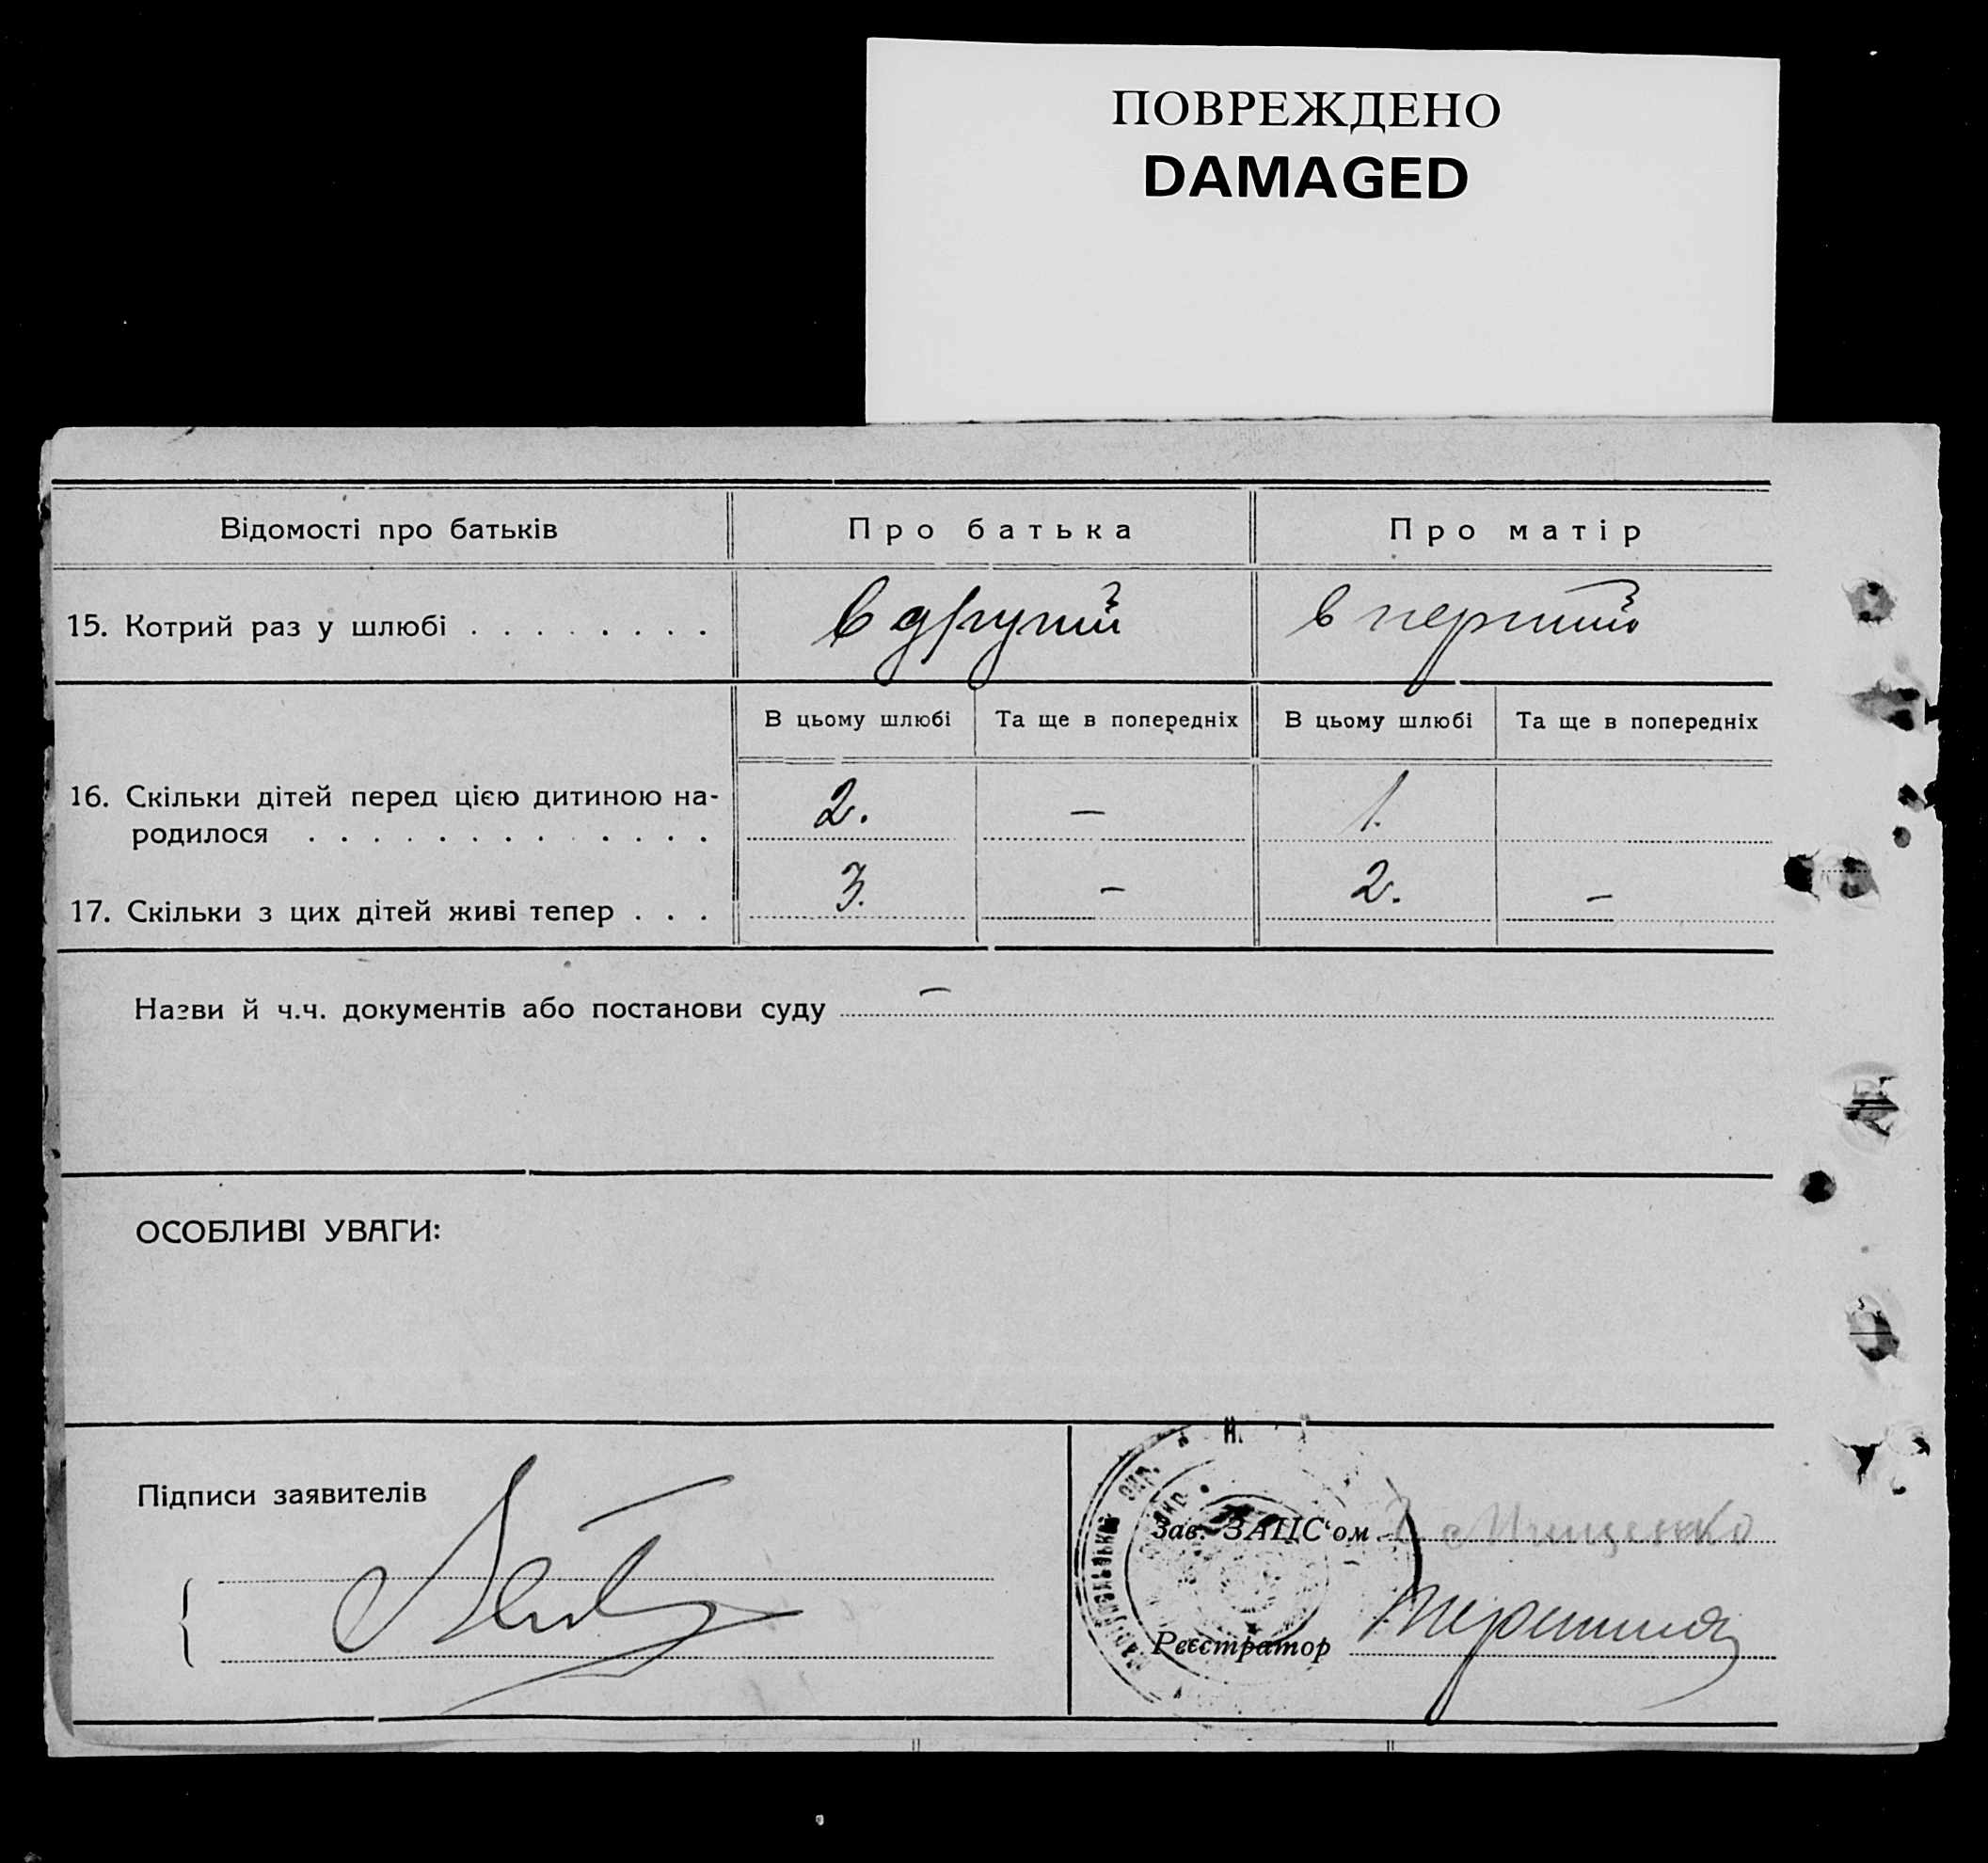 ПОВРЕЖДЕНО
DAMAGED
Відомості про батьків Про батька Про матір
15. Котрий раз у шлюбі . . . . . . . . в другий в перший
В цьому шлюбі Та ще в попередніх В цьому шлюбі Та ще в попередніх
16. Скільки дітей перед цією дитиною на-
родилося . . . . . . . . . . . . . 2. — 1.
17. Скільки з цих дітей живі тепер . . . 3. — 2. —
Назви й ч.ч. документів або постанови суду —
ОСОБЛИВІ УВАГИ:
Підписи заявителів
Зав. ЗАЦС‘ом Мищенко
Реєстратор